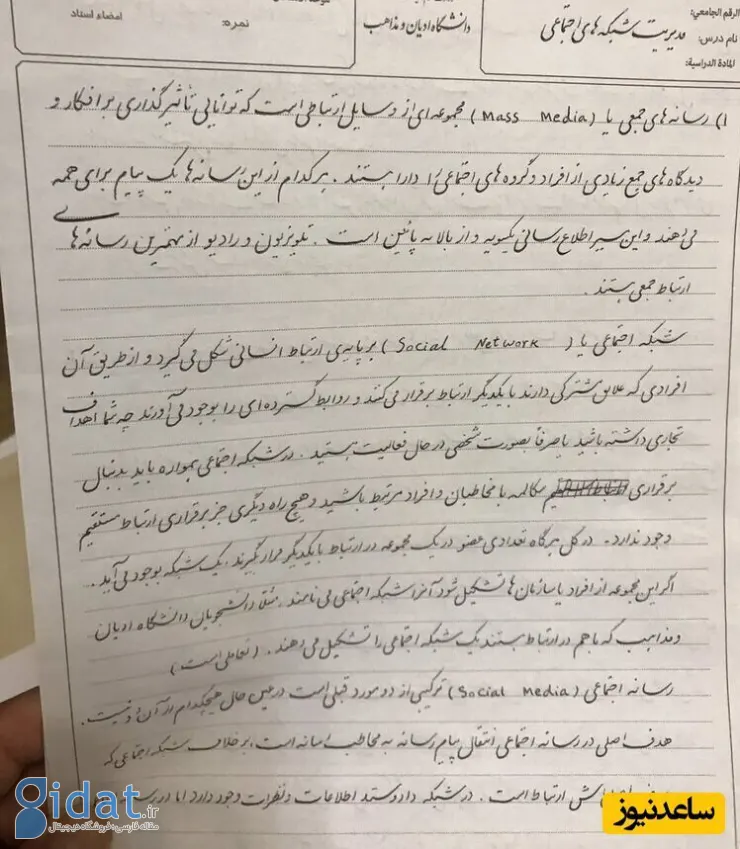 الرقم الجامعي:
نام درس: مدیریت شبکه های اجتماعی
المادة الدراسية:
دانشگاه ادیان و مذاهب
نمره:
امضاء استاد
۱) رسانه های جمعی یا (Mass Media) مجموعه ای از وسایل ارتباطی است که توانایی تأثیرگذاری بر افکار و
دیدگاه های جمع زیادی از افراد و گروه های اجتماعی را دارا هستند. هرکدام از این رسانه ها یک پیام برای همه
می دهند و این سیر اطلاع رسانی یکسویه و از بالا به پائین است. تلویزیون و رادیو از مهمترین رسانه های
ارتباط جمعی هستند.
شبکه اجتماعی یا (Social Network) بر پایه ی ارتباط انسانی شکل می گیرد و از طریق آن
افرادی که علایق مشترکی دارند با یکدیگر ارتباط برقرار می کنند و روابط گسترده ای را بوجود می آورند چه شما اهداف
تجاری داشته باشید یا صرفاً بصورت شخصی در حال فعالیت هستید. در شبکه اجتماعی همواره باید بدنبال
برقراری مکالمه با مخاطبان و افراد مرتبط باشید و هیچ راه دیگری جز برقراری ارتباط مستقیم
وجود ندارد. در کل هرگاه تعدادی عضو در یک مجموعه در ارتباط با یکدیگر قرار گیرند، یک شبکه بوجود می آید.
اگر این مجموعه از افراد یا سازمان ها تشکیل شود آنرا شبکه اجتماعی می نامند. مثلاً دانشجویان دانشگاه ادیان
و مذاهب که باهم در ارتباط هستند یک شبکه اجتماعی را تشکیل می دهند. (تعاملی است)
رسانه اجتماعی (Social Media) ترکیبی از دو مورد قبلی است در عین حال هیچکدام از آن دو نیست.
هدف اصلی در رسانه اجتماعی انتقال پیام رسانه به مخاطب رسانه است، بر خلاف شبکه اجتماعی که
ارتباط است. در شبکه داد و ستد اطلاعات و نظرات وجود دارد اما در
gidat.ir
مقاله فارسی؛ فروشگاه دیجیتال
ساعدنیوز